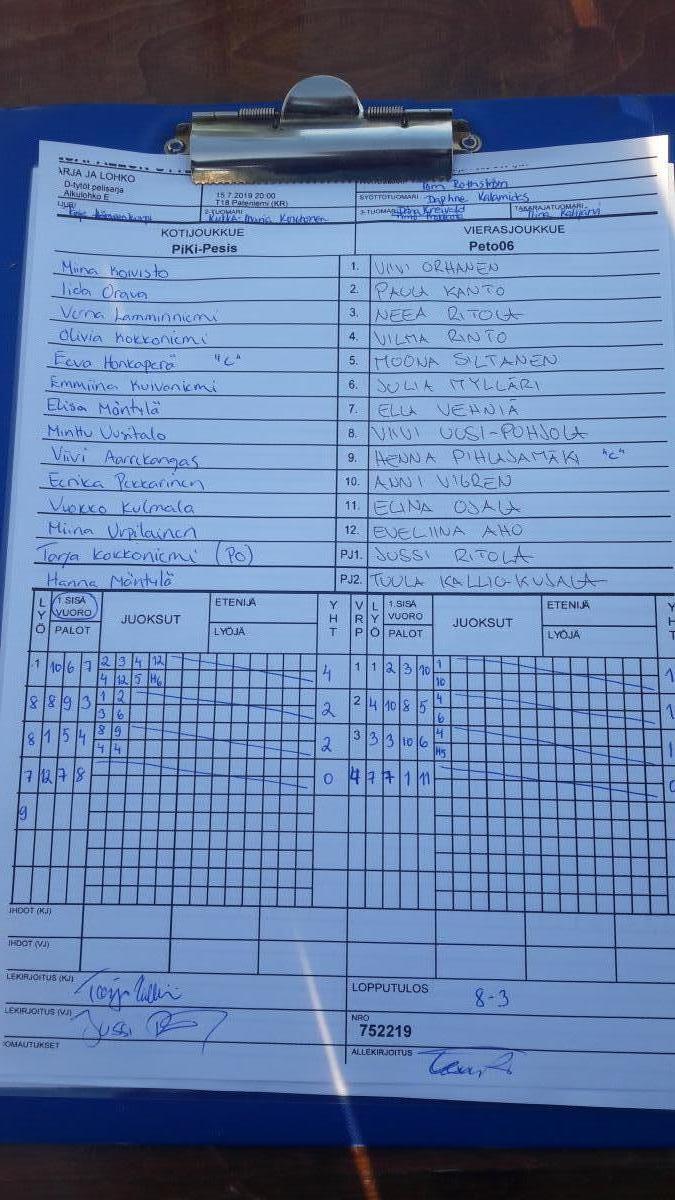 ARJA JA LOHKO
D-tytöt pelisarja
Alkulohko E
15.7.2019 20:00
T18 Pateniemi (KR)
Tom Rothström
SYÖTTÖTUOMARI Daphne Kalamids
2-TUOMARI
3-TUOMARI
TAKARAJATUOMARI
KOTIJOUKKUE VIERASJOUKKUE
PiKi-Pesis Peto06
Miina Koivisto 1. VIIVI ORHANEN
Iida Orava 2. PAULA KANTO
Verna Lamminniemi 3. NEEA RITOLA
Olivia Kokkoniemi 4. VILMA RINTO
Eeva Honkaperä "C" 5. MOONA SILTANEN
Emmiina Kuivaniemi 6. JULIA MYLLÄRI
Elisa Mäntylä 7. ELLA VEHNIÄ
Minttu Uusitalo 8. VIIVI UUSI-POHJOLA
Viivi Aarrekangas 9. HENNA PIHLAJAMÄKI "C"
Eerika Pekkarinen 10. ANNI VIGREN
Vuokko Kulmala 11. ELINA OJALA
Miina Urpilainen 12. EVELIINA AHO
Tarja Kokkoniemi (PO) PJ1. JUSSI RITOLA
Hanna Mäntylä PJ2. TUULA KALLIO-KUJALA
LYÖ 1.SISÄ VUORO PALOT JUOKSUT ETENIJÄ LYÖJÄ YHT VRP LYÖ 1.SISÄ VUORO PALOT JUOKSUT ETENIJÄ LYÖJÄ YHT
1 10 6 7 2 3 4 12 4 1 1 2 3 10 1 1
4 12 5 H6 10
8 8 9 3 1 2 2 2 4 10 8 5 4 1
3 6 6
8 1 5 4 8 9 2 3 3 3 10 6 4 1
4 4 H5
7 12 7 8 0 4 7 7 1 11 0
9
IHDOT (KJ)
IHDOT (VJ)
LEKIRJOITUS (KJ)
LOPPUTULOS 8-3
LEKIRJOITUS (VJ) Jussi
NRO
752219
OMAUTUKSET
ALLEKIRJOITUS